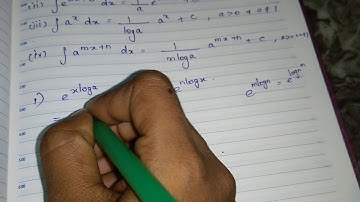 (ii) ∫ e dx = 1/a e
(iii) ∫ a^x dx = 1/loga a^x + c , a>0 a≠1
(iv) ∫ a^(mx+n) dx = 1/(mloga) a^(mx+n) + c , a>0
1) e^(xloga) e^(nlogx). e^(mlogn) = e^(logn^m)
=